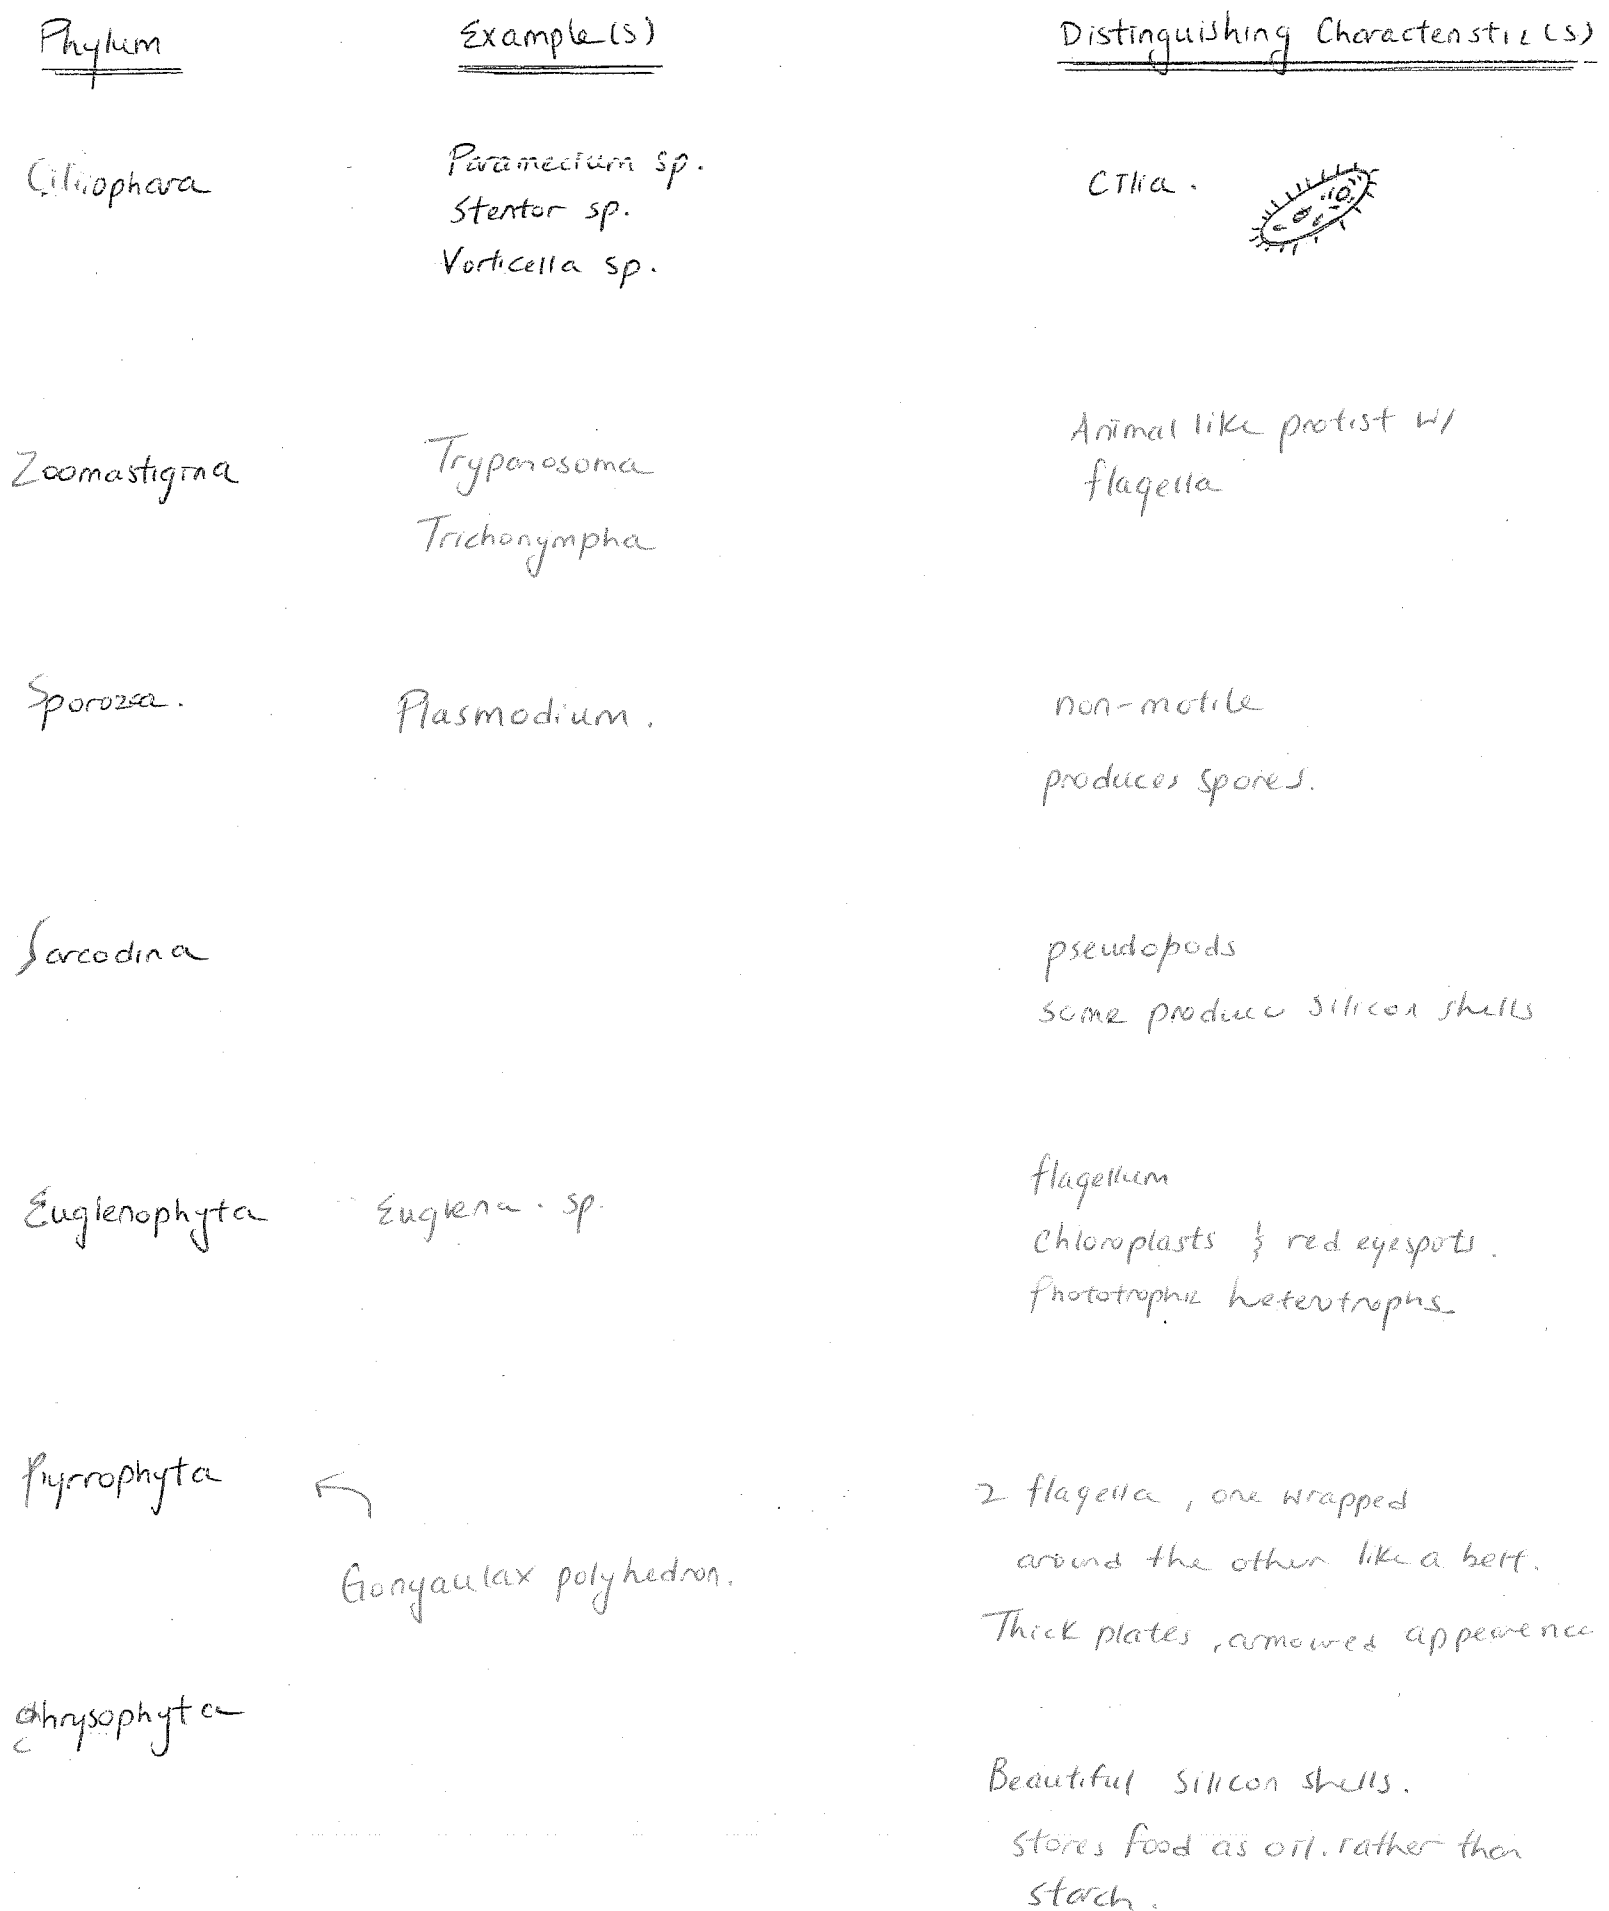 Phylum Example(s) Distinguishing Characteristic(s)
Ciliophara Paramecium sp. Cilia.
Stentor sp.
Vorticella sp.
Zoomastigina Trypanosoma Animal like protist w/
flagella
Trichonympha
Sporozoa. Plasmodium. non-motile
produces spores.
Sarcodina pseudopods
some produce silicon shells
Euglenophyta Euglena. sp. flagellum
chloroplasts & red eyespots.
Phototrophic heterotrophs
Pyrrophyta 2 flagella, one wrapped
around the other like a belt.
Gonyaulax polyhedron.
Thick plates, armoured appearence
Chrysophyta
Beautiful silicon shells.
stores food as oil. rather than
starch.